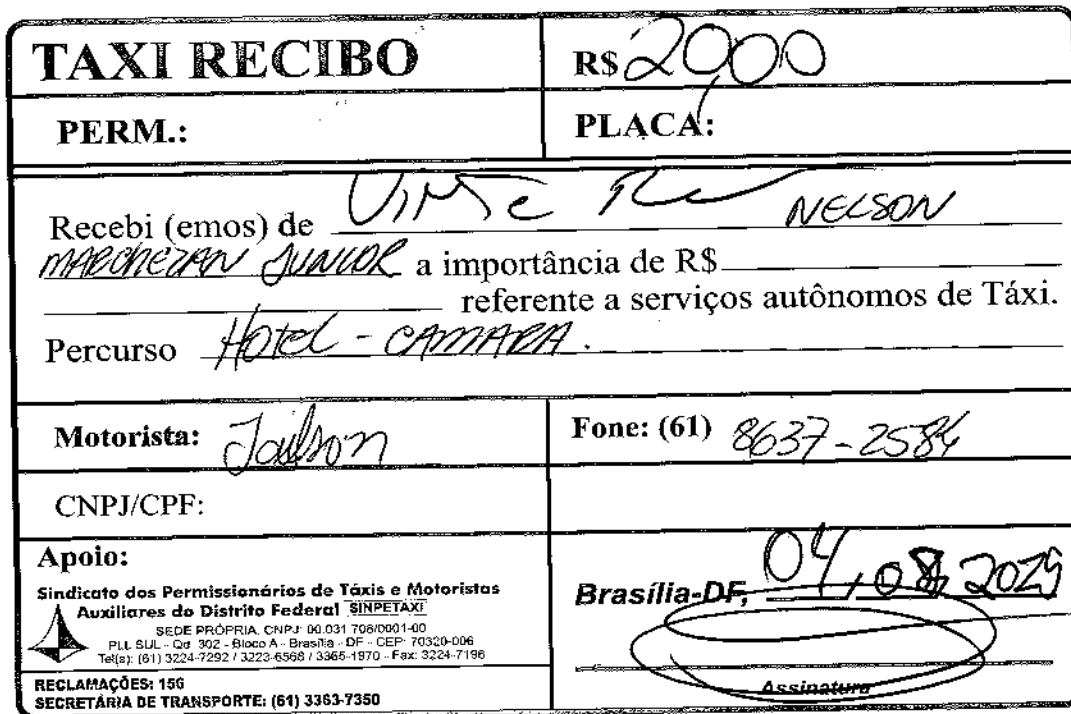 TAXI RECIBO
R$ 20,00
PERM.:
PLACA:
Recebi (emos) de Vinte NELSON
MARCHEZAN JUNIOR a importância de R$
referente a serviços autônomos de Táxi.
Percurso HOTEL - CAMARA.
Motorista: Jailson
Fone: (61) 8637-2584
CNPJ/CPF:
Apoio:
Sindicato dos Permissionários de Táxis e Motoristas
Auxiliares do Distrito Federal SINPETAXI
SEDE PRÓPRIA. CNPJ: 00.031 708/0001-00
PLL SUL - Qd 302 - Bloco A - Brasília - DF - CEP: 70320-006
Tel(s): (61) 3224-7292 / 3223-6568 / 3365-1970 - Fax: 3224-7196
RECLAMAÇÕES: 156
SECRETÁRIA DE TRANSPORTE: (61) 3363-7350
Brasília-DF, 04, 08,
Assinatura